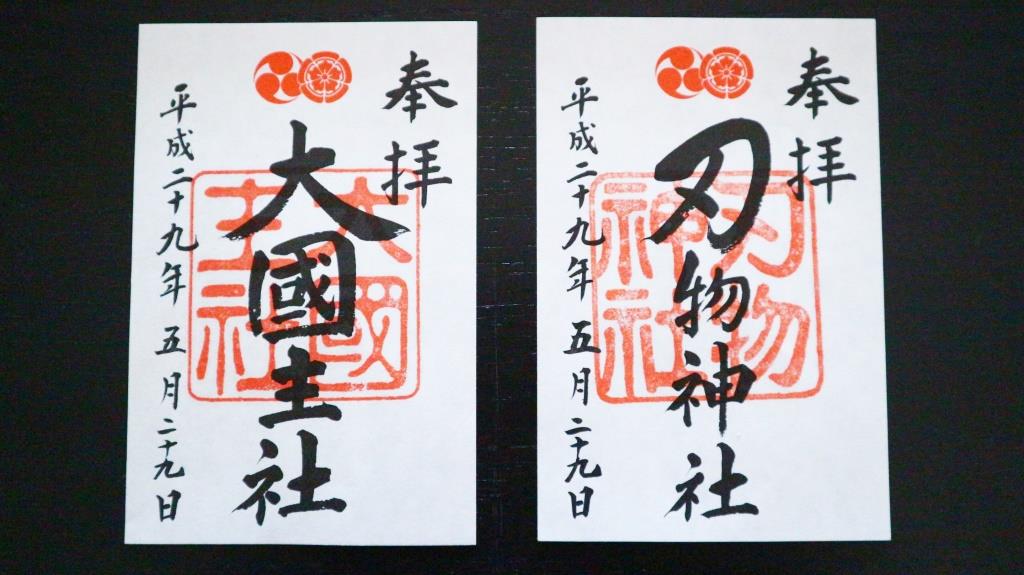 奉拝
大國主社
大國主社
平成二十九年五月二十九日
奉拝
刃物神社
刃物神社
平成二十九年五月二十九日